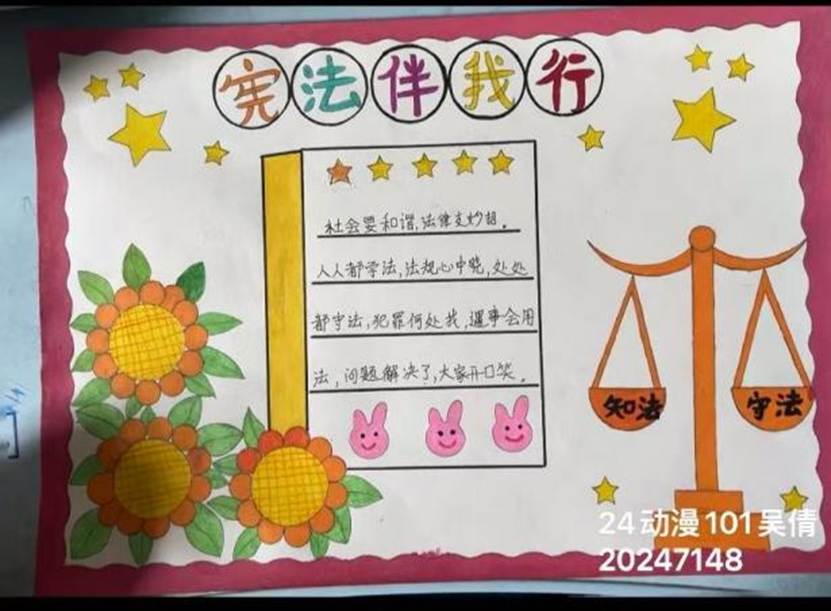 宪法伴我行
社会要和谐,法律支妙招。
人人都学法,法规心中晓,处处
都守法,犯罪何处找,遇事会用
法,问题解决了,大家开口笑。
知法
守法
24动漫101吴倩
20247148